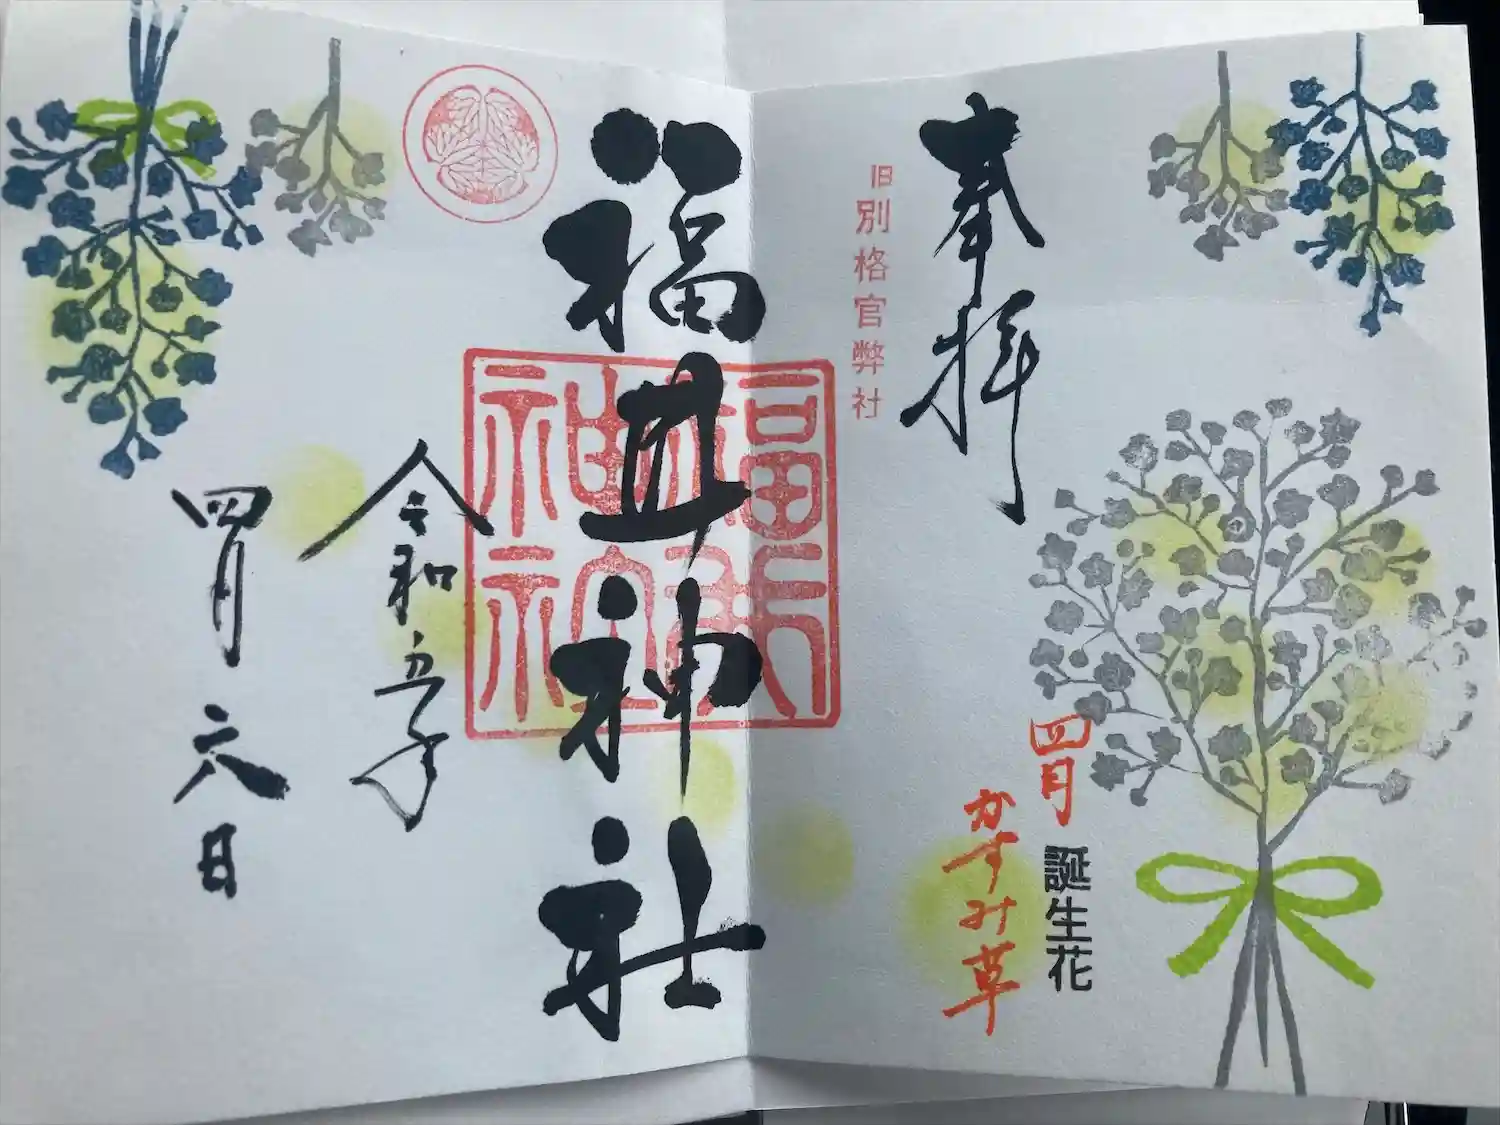 奉拝
旧別格官弊社
四月
誕生花
かすみ草
福井神社
福井神社
令和五年
四月六日